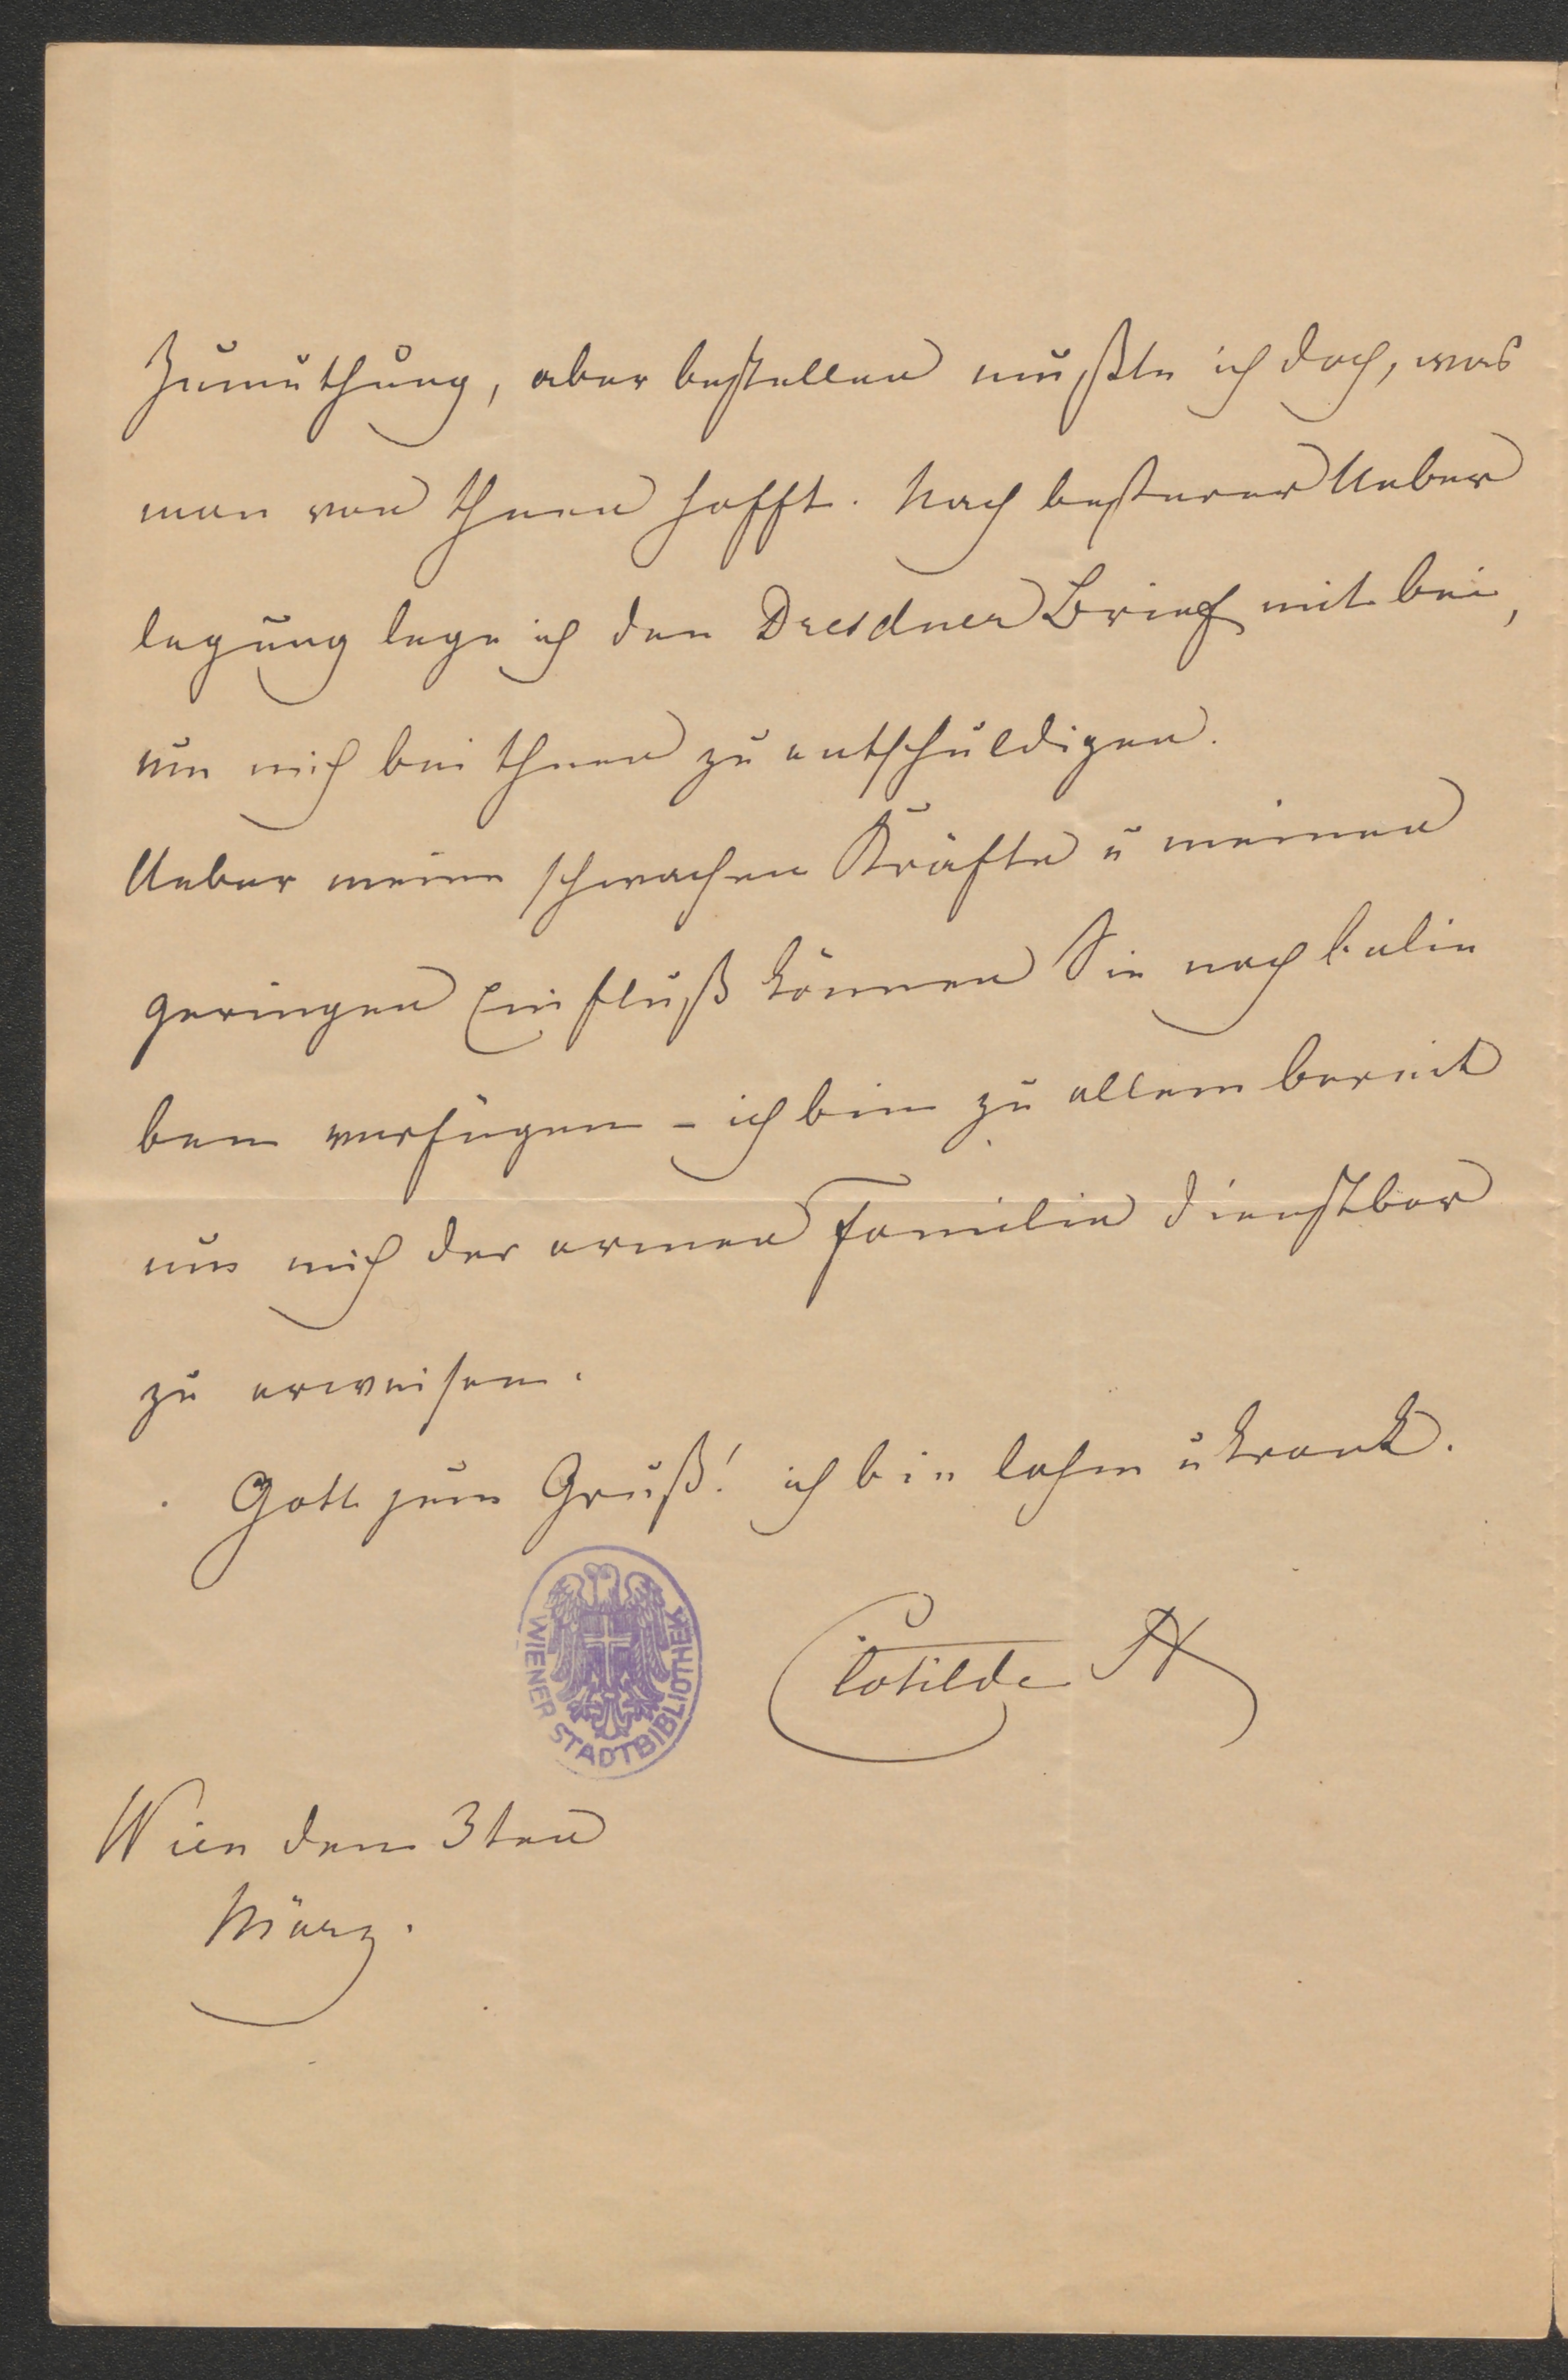 Zumuthung, aber bestellen mußte ich doch, was
man von Ihnen hofft. Nach besserer Ueber
legung lege ich den Dresdner Brief mit bei,
um mich bei Ihnen zu entschuldigen.
Ueber meine schwachen Kräfte u meinen
geringen Einfluß können Sie nach belie
ben verfügen – ich bin zu allem bereit
um mich der armen Familie dienstbar
zu erweisen.
Gott zum Gruß! ich bin lahm u krank.
WIENER STADTBIBLIOTHEK
Clotilde
Wien den 3ten
März.